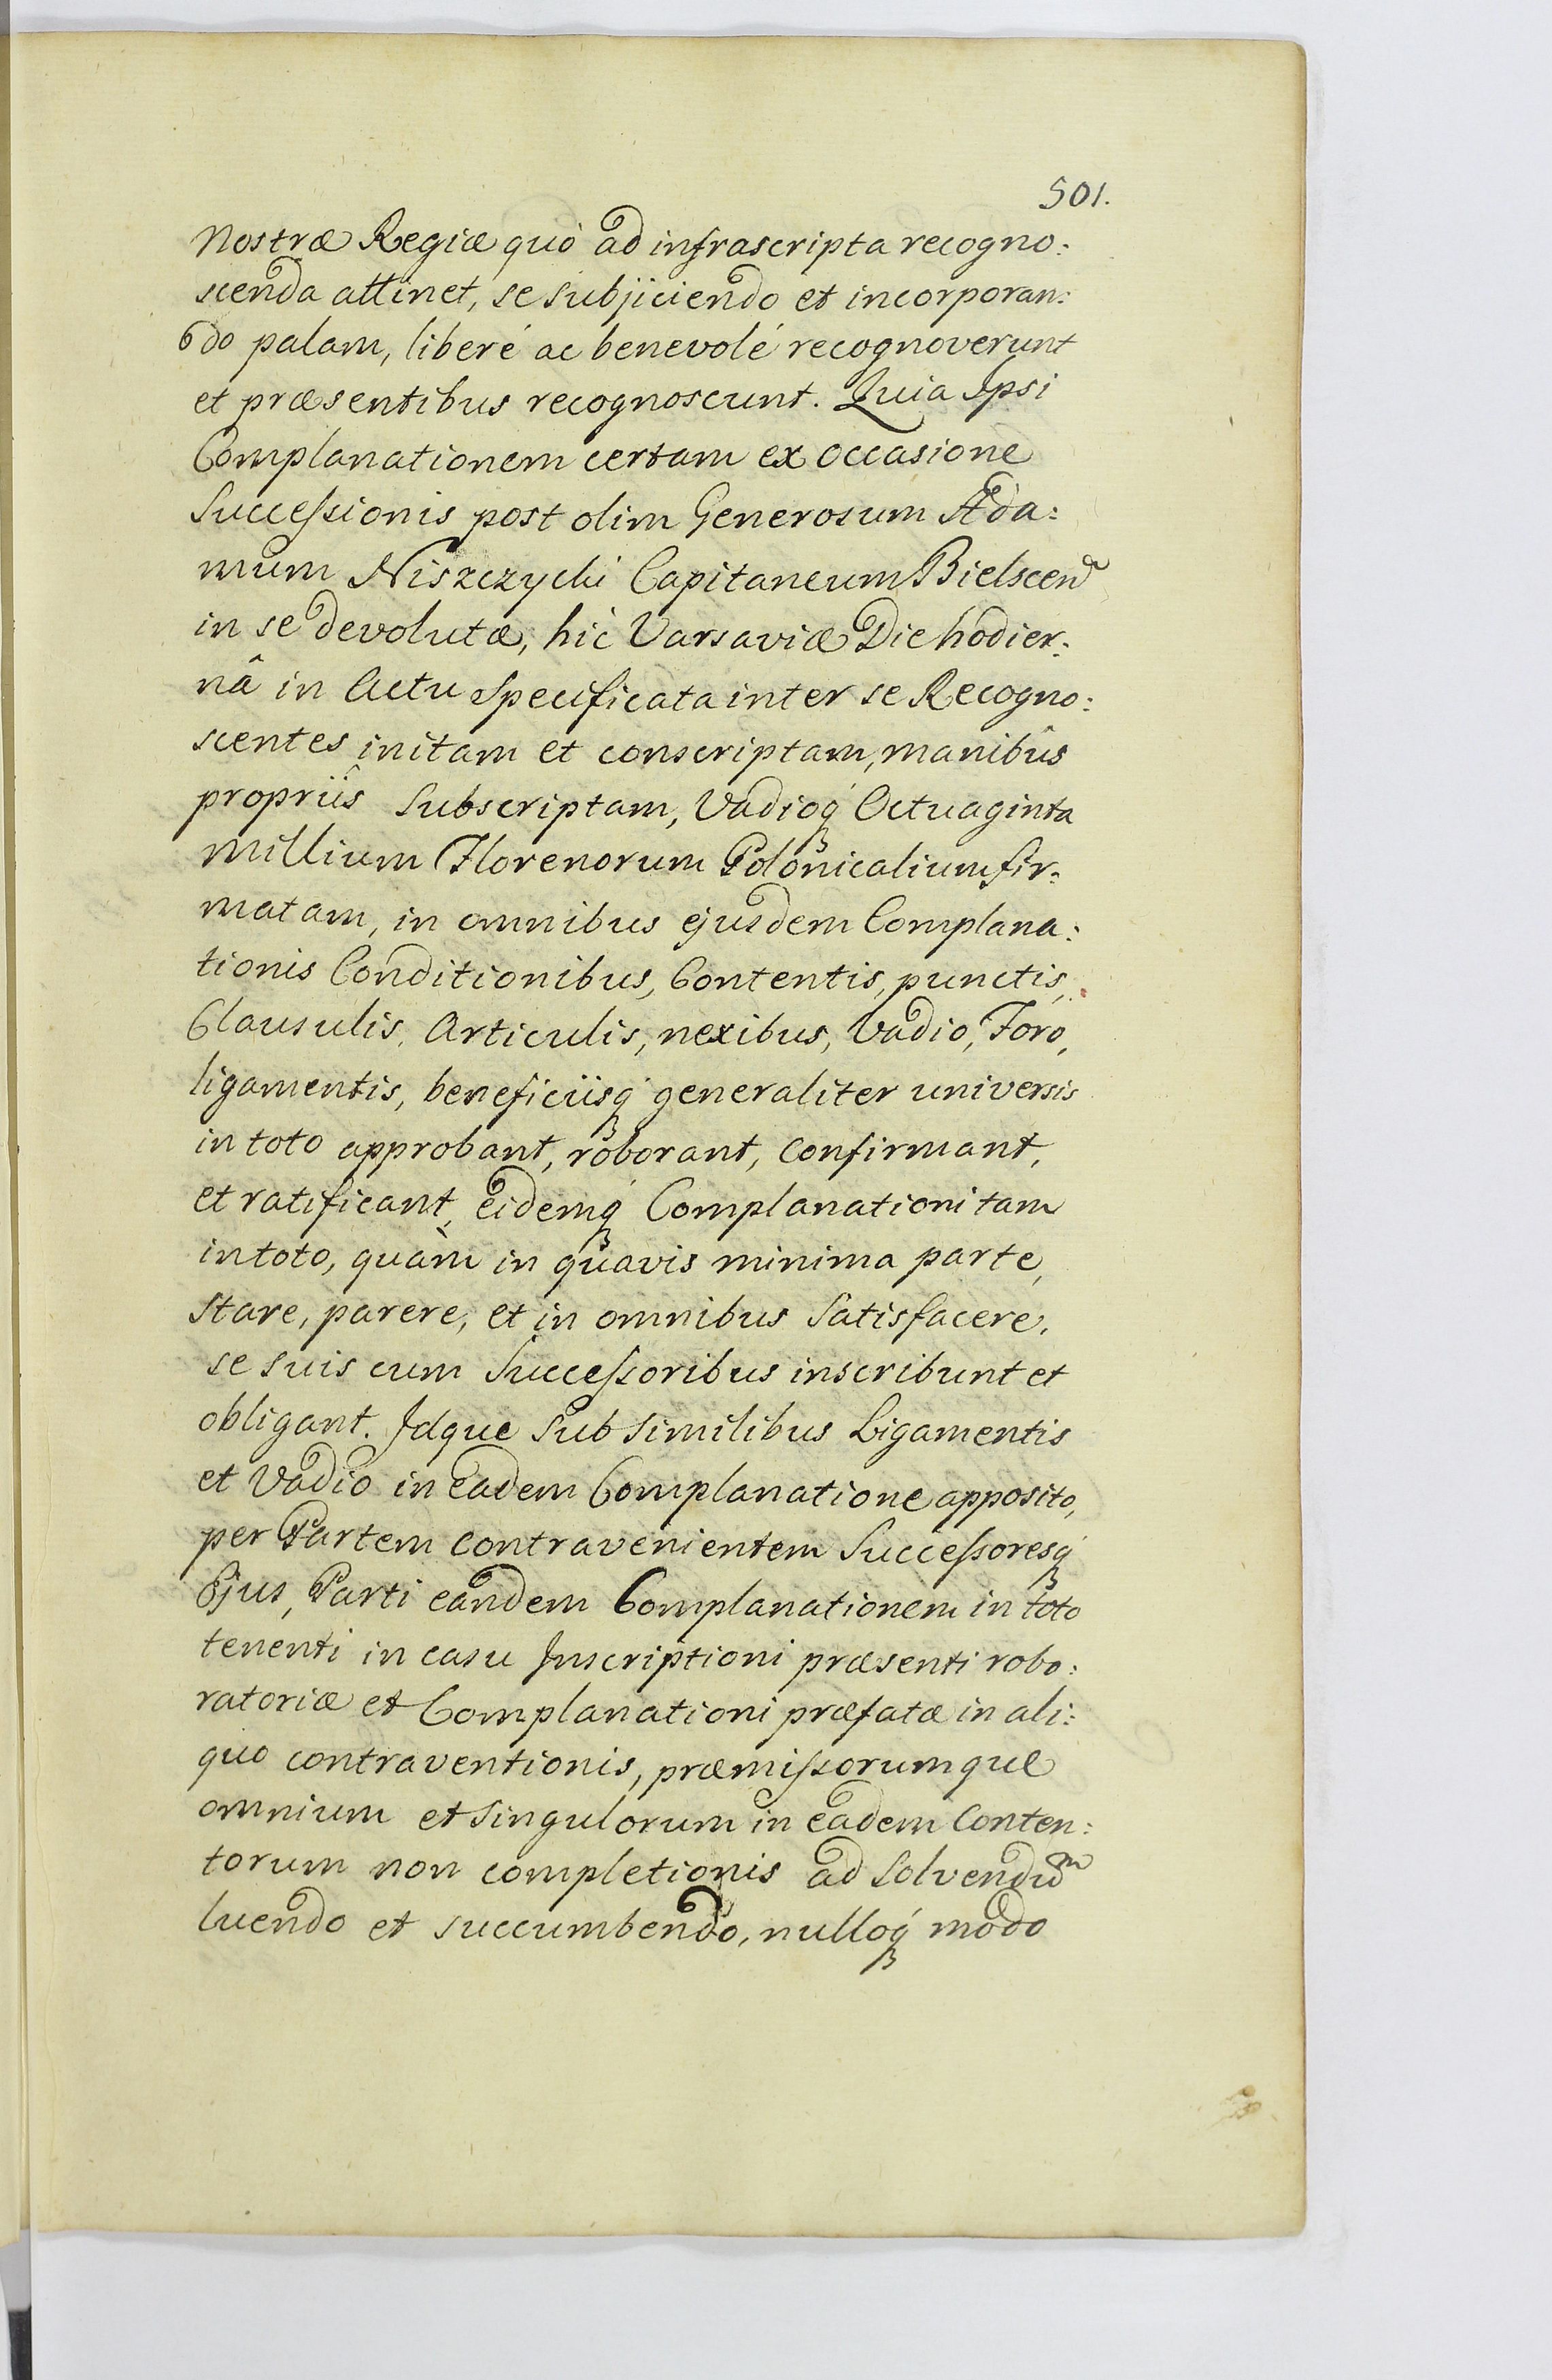 501.
Nostræ Regiæ quò ad infrascripta recogno:
scenda attinet, se subjiciendo et incorporan:
do palam, liberé ac benevolé recognoverunt
et præsentibus recognoscunt. Quia Ipsi
Complanationem certam ex occasione
Succeſsionis post olim Generosum Ada:
mum Niszczycki Capitaneum Bielscen
in se devolutæ, hic Varsaviæ Die hodier:
nâ in Actu specificata inter se Recogno:
scentes initam et conscriptam, manibûs
propriîs Subscriptam, Vadioq́ Octuaginta
Millium Florenorum Polonicalium fir:
matam, in omnibus ejusdem Complana:
tionis Conditionibus, Contentis, punctis,
Clausulis, Articulis, nexibus, Vadio, Foro,
ligamentis, beneficiisq́ generaliter universis
in toto approbant, roborant, confirmant,
et ratificant, eidemq́ Complanationi tam
in toto, quàm in quavis minima parte,
stare, parere, et in omnibus satisfacere,
se suis cum Succeſsoribus inscribunt et
obligant. Idque sub similibus Ligamentis
et Vadio in eadem Complanatione apposito,
per Partem contravenientem Succeſsoresq́
Ejus, Parti eandem Complanationem in toto
tenenti in casu Inscriptioni præsenti robo:
ratoriæ et Complanationi præfatæ in ali:
quo contraventionis, præmiſsorumque
omnium et singulorum in eadem Conten:
torum non completionis ad solvendum
luendo et succumbendo, nulloq́ modo